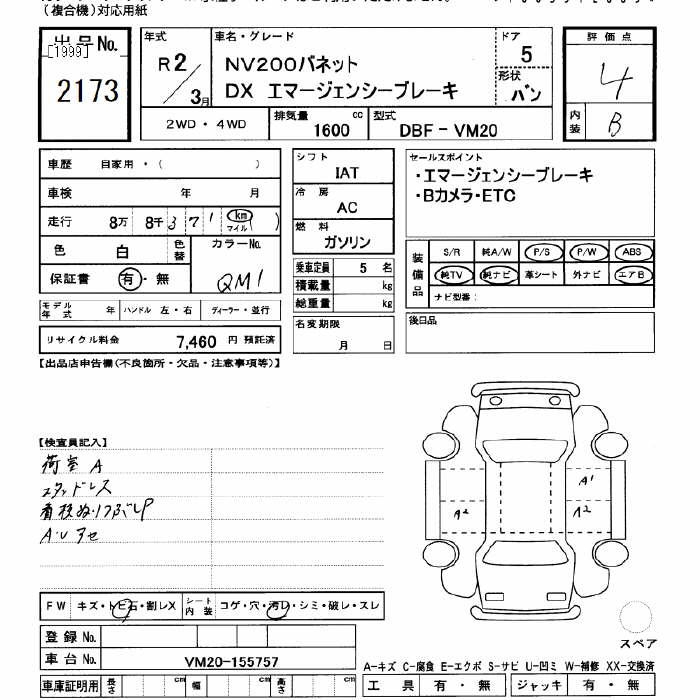 (複合機)対応用紙
出品No.
[1999]
2173
年式
R2/3月
車名・グレード
NV200バネット
DX エマージェンシーブレーキ
ドア
5
形状
バン
評価点
4
内装
B
2WD・4WD
排気量
1600 cc
型式
DBF-VM20
車歴 自家用・( )
車検 年 月
走行 8万 8千 3 7 1 (km マイル)
色 白 色替 カラーNo.
保証書 有・無 QM1
モデル年式 年 ハンドル 左・右 ディーラー・並行
リサイクル料金 7,460 円 預託済
シフト
IAT
冷房
AC
燃料
ガソリン
乗車定員 5 名
積載量 kg
総重量 kg
名変期限
月 日
セールスポイント
・エマージェンシーブレーキ
・Bカメラ・ETC
装備品
S/R 純A/W P/S P/W ABS
純TV 純ナビ 革シート 外ナビ エアB
ナビ型番:
後日品
【出品店申告欄(不良箇所・欠品・注意事項等)】
【検査員記入】
荷室 A
スタッドレス
A・U アセ
A1
A2
A2
FW キズ・トビ石・割レX シート内装 コゲ・穴・汚レ・シミ・破レ・スレ
登録No.
車台No. VM20-155757
スペア
A-キズ C-腐食 E-エクボ S-サビ U-凹ミ W-補修 XX-交換済
車庫証明用 長さ cm 幅 cm 高さ cm
工具 有・無 ジャッキ 有・無